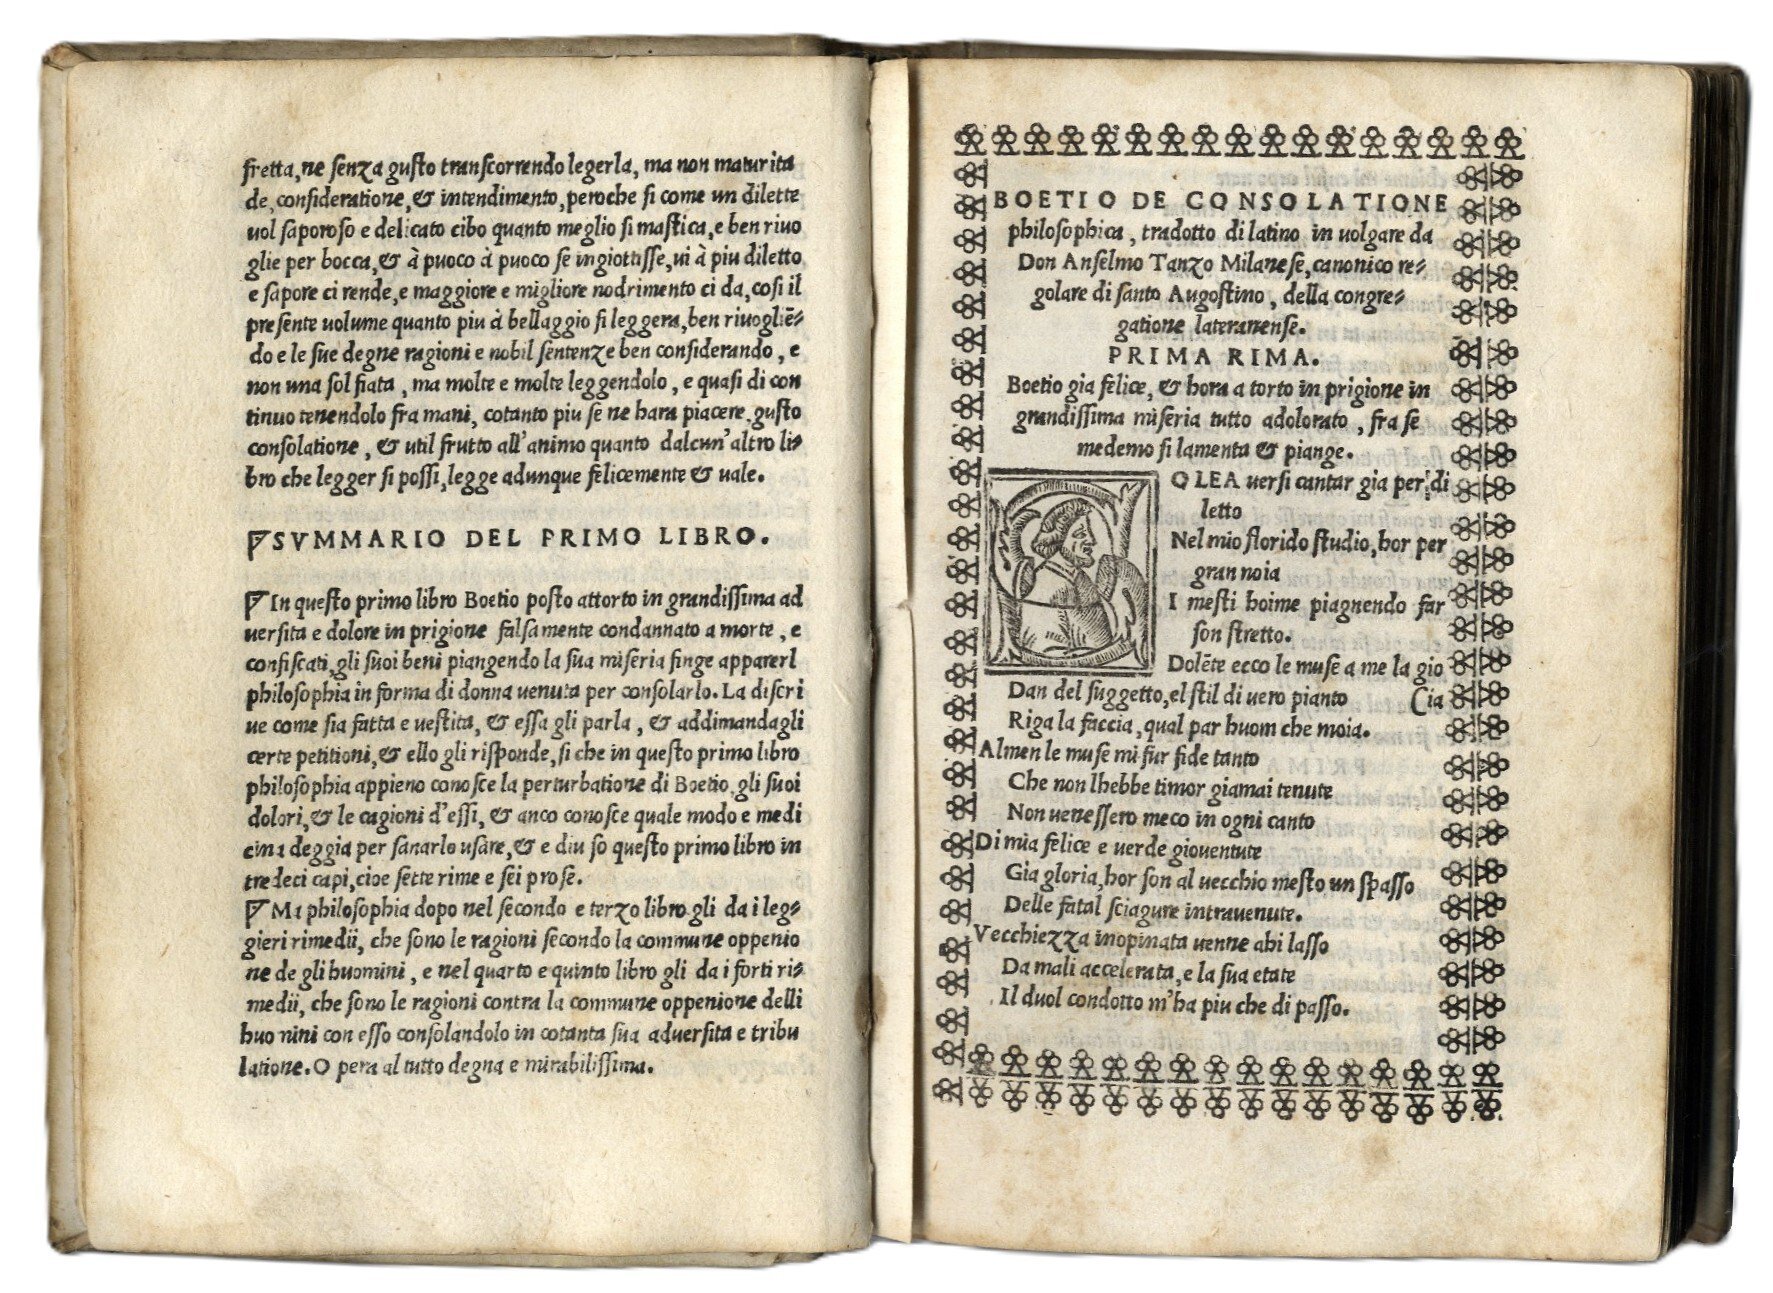 fretta, ne senza gusto transcorrendo legerla, ma non maturita
de, consideratione, & intendimento, peroche si come un dilette
uol saporoso e delicato cibo quanto meglio si mastica, e ben riuo
glie per bocca, & à puoco à puoco se ingiottisse, ui à piu diletto
e sapore ci rende, e maggiore e migliore nodrimento ci da, cosi il
presente uolume quanto piu à bellaggio si leggera, ben riuogliē-
do e le sue degne ragioni e nobil sentenze ben considerando, e
non una sol fiata, ma molte e molte leggendolo, e quasi di con
tinuo tenendolo fra mani, cotanto piu se ne hara piacere, gusto
consolatione, & util frutto all'animo quanto dalcun'altro li-
bro che legger si possi, legge adunque felicemente & uale.
SVMMARIO DEL PRIMO LIBRO.
In questo primo libro Boetio posto attorto in grandissima ad
uersita e dolore in prigione falsamente condannato a morte, e
confiscati, gli suoi beni piangendo la sua miseria finge apparerl
philosophia in forma di donna uenuta per consolarlo. La discri
ue come sia fatta e uestita, & essa gli parla, & addimandagli
certe petitioni, & ello gli risponde, si che in questo primo libro
philosophia appieno conosce la perturbatione di Boetio, gli suoi
dolori, & le cagioni d'essi, & anco conosce quale modo e medi
cina deggia per sanarlo usare, & e diuiso questo primo libro in
tredeci capi, cioe sette rime e sei prose.
Ma philosophia dopo nel secondo e terzo libro gli da i leg-
gieri rimedii, che sono le ragioni secondo la commune oppenio
ne de gli huomini, e nel quarto e quinto libro gli da i forti ri-
medii, che sono le ragioni contra la commune oppenione delli
huomini con esso consolandolo in cotanta sua aduersita e tribu
latione. O pera al tutto degna e mirabilissima.
BOETIO DE CONSOLATIONE
philosophica, tradotto di latino in uolgare da
Don Anselmo Tanzo Milanese, canonico re-
golare di santo Augostino, della congre-
gatione lateranense.
PRIMA RIMA.
Boetio gia felice, & hora a torto in prigione in
grandissima miseria tutto adolorato, fra se
medemo si lamenta & piange.
OLEA uersi cantar gia per di
letto
Nel mio florido studio, hor per
gran noia
I mesti hoime piagnendo far
son stretto.
Dolēte ecco le muse a me la gio
Dan del suggetto, el stil di uero pianto (cia
Riga la faccia, qual par huom che moia.
Almen le muse mi fur fide tanto
Che non lhebbe timor giamai tenute
Non uenessero meco in ogni canto
Di mia felice e uerde giouentute
Gia gloria, hor son al uecchio mesto un spasso
Delle fatal sciagure intrauenute.
Vecchiezza inopinata uenne ahi lasso
Da mali accelerata, e la sua etate
Il duol condotto m'ha piu che di passo.